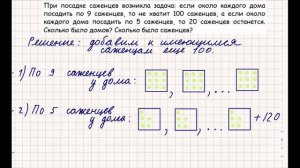 При посадке саженцев возникла задача: если около каждого дома
посадить по 9 саженцев, то не хватит 100 саженцев, а если около
каждого дома посадить по 5 саженцев, то 20 саженцев останется.
Сколько было домов? Сколько было саженцев?
Решение: добавим к имеющимся
саженцам еще 100.
1) По 9 саженцев
у дома: , , ...
2) По 5 саженцев
у дома: , , ... +120